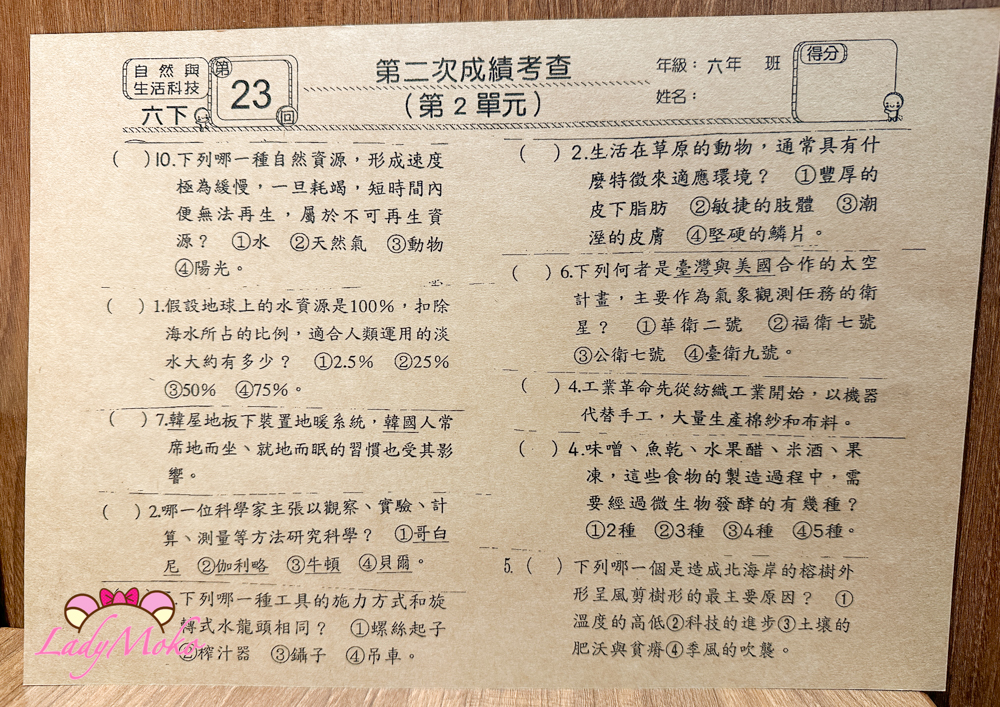 自然與
生活科技
六下
第
23
回
第二次成績考查
（第2單元）
年級：六年 班
姓名：
得分
( )10.下列哪一種自然資源，形成速度
極為緩慢，一旦耗竭，短時間內
便無法再生，屬於不可再生資
源？ ①水 ②天然氣 ③動物
④陽光。
( )1.假設地球上的水資源是100%，扣除
海水所占的比例，適合人類運用的淡
水大約有多少？ ①2.5% ②25%
③50% ④75%。
( )7.韓屋地板下裝置地暖系統，韓國人常
席地而坐、就地而眠的習慣也受其影
響。
( )2.哪一位科學家主張以觀察、實驗、計
算、測量等方法研究科學？ ①哥白
尼 ②伽利略 ③牛頓 ④貝爾。
下列哪一種工具的施力方式和旋
轉式水龍頭相同？ ①螺絲起子
②榨汁器 ③鑷子 ④吊車。
( )2.生活在草原的動物，通常具有什
麼特徵來適應環境？ ①豐厚的
皮下脂肪 ②敏捷的肢體 ③潮
溼的皮膚 ④堅硬的鱗片。
( )6.下列何者是臺灣與美國合作的太空
計畫，主要作為氣象觀測任務的衛
星？ ①華衛二號 ②福衛七號
③公衛七號 ④臺衛九號。
( )4.工業革命先從紡織工業開始，以機器
代替手工，大量生產棉紗和布料。
( )4.味噌、魚乾、水果醋、米酒、果
凍，這些食物的製造過程中，需
要經過微生物發酵的有幾種？
①2種 ②3種 ③4種 ④5種。
5.( ) 下列哪一個是造成北海岸的榕樹外
形呈風剪樹形的最主要原因？ ①
溫度的高低②科技的進步③土壤的
肥沃與貧瘠④季風的吹襲。
LadyMoko